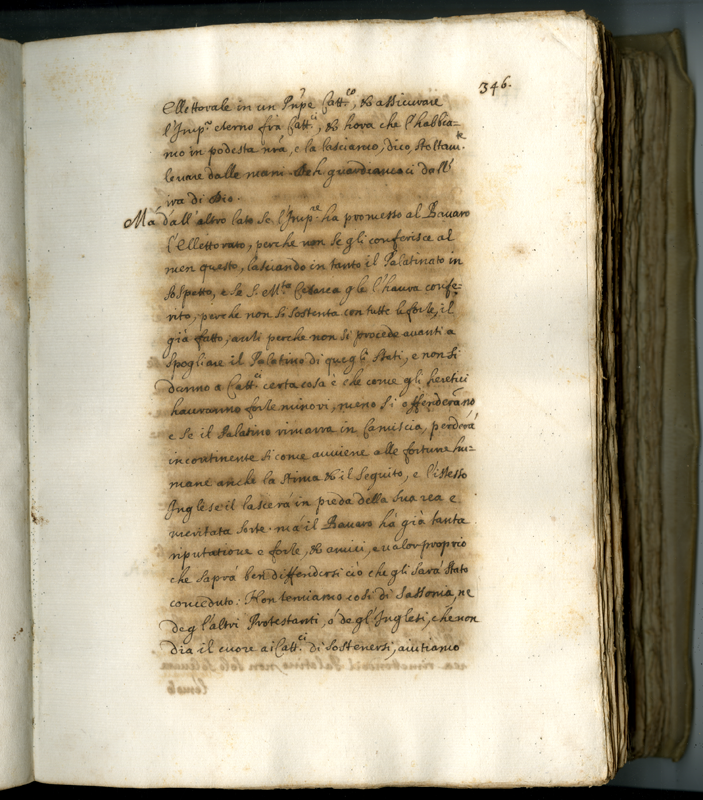 346.
Ellettorale in un Pnpe Catt.co, & assicurare
l'Imp.o eterno fra Catt.ci, & hora che l'habbia=
mo in podestà nra, e la lasciamo, dico, stoltam.te
levare dalle mani. Deh guardiamoci dall'
ira di Dio.
Mà dall'altro lato se l'Imp.re ha promesso al Bavaro
l'Ellettorato, perche non se gli conferisce al
men questo, lasciando in tanto il Palatinato in
sospetto, e se S. M.tà Cesarea gle l'haurà confe=
rito, perche non si sostenta con tutte le forze il
già fatto, anzi perche non si procede avanti a
spogliare il Palatino di quegli stati, e non si
danno a Catt.ci certa cosa è che come gli heretici
hauranno forze minori, meno si offenderano
e se il Palatino rimarrà in Camiscia, perderà
incontinente si come auuiene alle fortune hu=
mane anche la stima & il seguito, e l'istesso
Inglese il lascerà in preda della sua rea e
meritata sorte. ma il Bavaro hà già tanta
riputatione e forze, & amici, e valor proprio
che saprà ben diffendersi ciò che gli sarà stato
conceduto. Non temiamo così di Sassonia, ne
degl'altri Protestanti, ò degl'Inglesi, che non
dia il cuore ai Catt.ci di sostenersi, aiutiamo